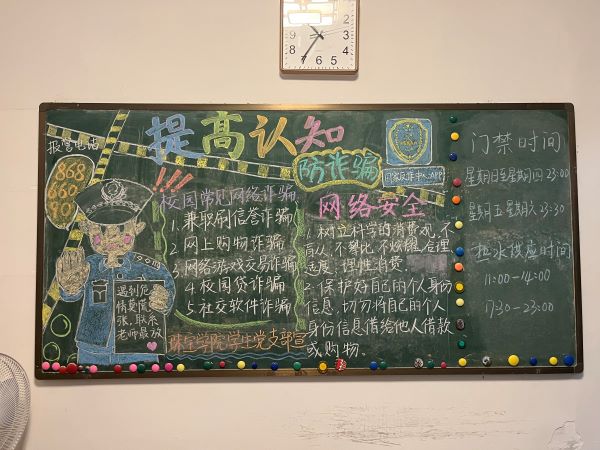 提高认知
防诈骗
报警电话
868
660
校园常见网络诈骗
1.兼职刷信誉诈骗
2.网上购物诈骗
3.网络游戏交易诈骗
4.校园贷诈骗
5.社交软件诈骗
遇到危
情莫慌
张,联系
老师最
学院学生党支部宣
国家反诈中心APP
网络安全
1.树立科学的消费观,不
盲从、不攀比、不炫耀,合理
适度,理性消费.
2.保护好自己的个人身份
信息,切勿将自己的个人
身份信息借给他人借款
或购物.
门禁时间
星期日至星期四 23:00
星期五 星期六 23:30
热水供应时间
11:00-14:00
17:30-23:00